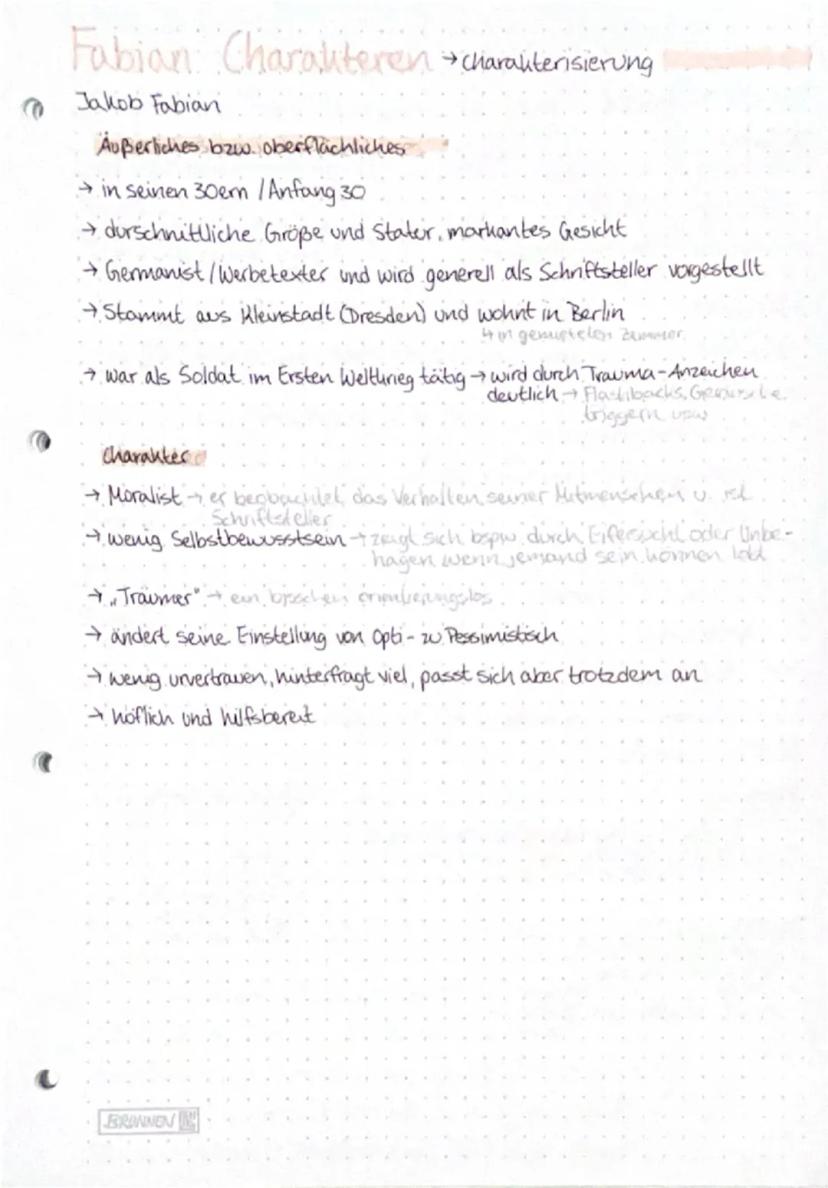 Fabian Charakteren → charakterisierung
Jakob Fabian
Äußerliches bzw. oberflächliches
→ in seinen 30ern / Anfang 30
→ durschnittliche Größe und Statur, markantes Gesicht
→ Germanist / Werbetexter und wird generell als Schriftsteller vorgestellt
→ Stammt aus Kleinstadt (Dresden) und wohnt in Berlin
↳ in gemieteten Zimmer
→ war als Soldat im Ersten Weltkrieg tätig → wird durch Trauma-Anzeichen
deutlich → Flashbacks, Geräusche
triggern usw
Charakter
→ Moralist → er beobachtet das Verhalten seiner Mitmenschen u. ist
Schriftsteller
→ wenig Selbstbewusstsein → zeigt sich bspw. durch Eifersucht oder Unbe-
hagen wenn jemand sein können lobt
→ „Träumer" → ein bisschen orientierungslos
→ ändert seine Einstellung von Opti- zu Pessimistisch
→ wenig urvertrauen, hinterfragt viel, passt sich aber trotzdem an
→ höflich und hilfsbereit
BRUNNEN